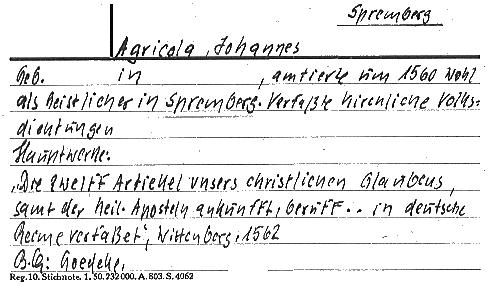 Spremberg
Agricola, Johannes
Geb. in , amtierte um 1560 wohl
als Geistlicher in Spremberg. Verfaßte kirchliche Volks-
dichtungen
Hauptwerke:
"Die zwelff Artickel unsers christlichen Glaubens,
samt der heil. Aposteln ankunfft, beruff .. in deutsche
Reime verfaßet", Wittenberg, 1562
B.Q: Goedeke,
Reg. 10. Stichnote. 1. 50. 232 000. A. 803. S. 4062